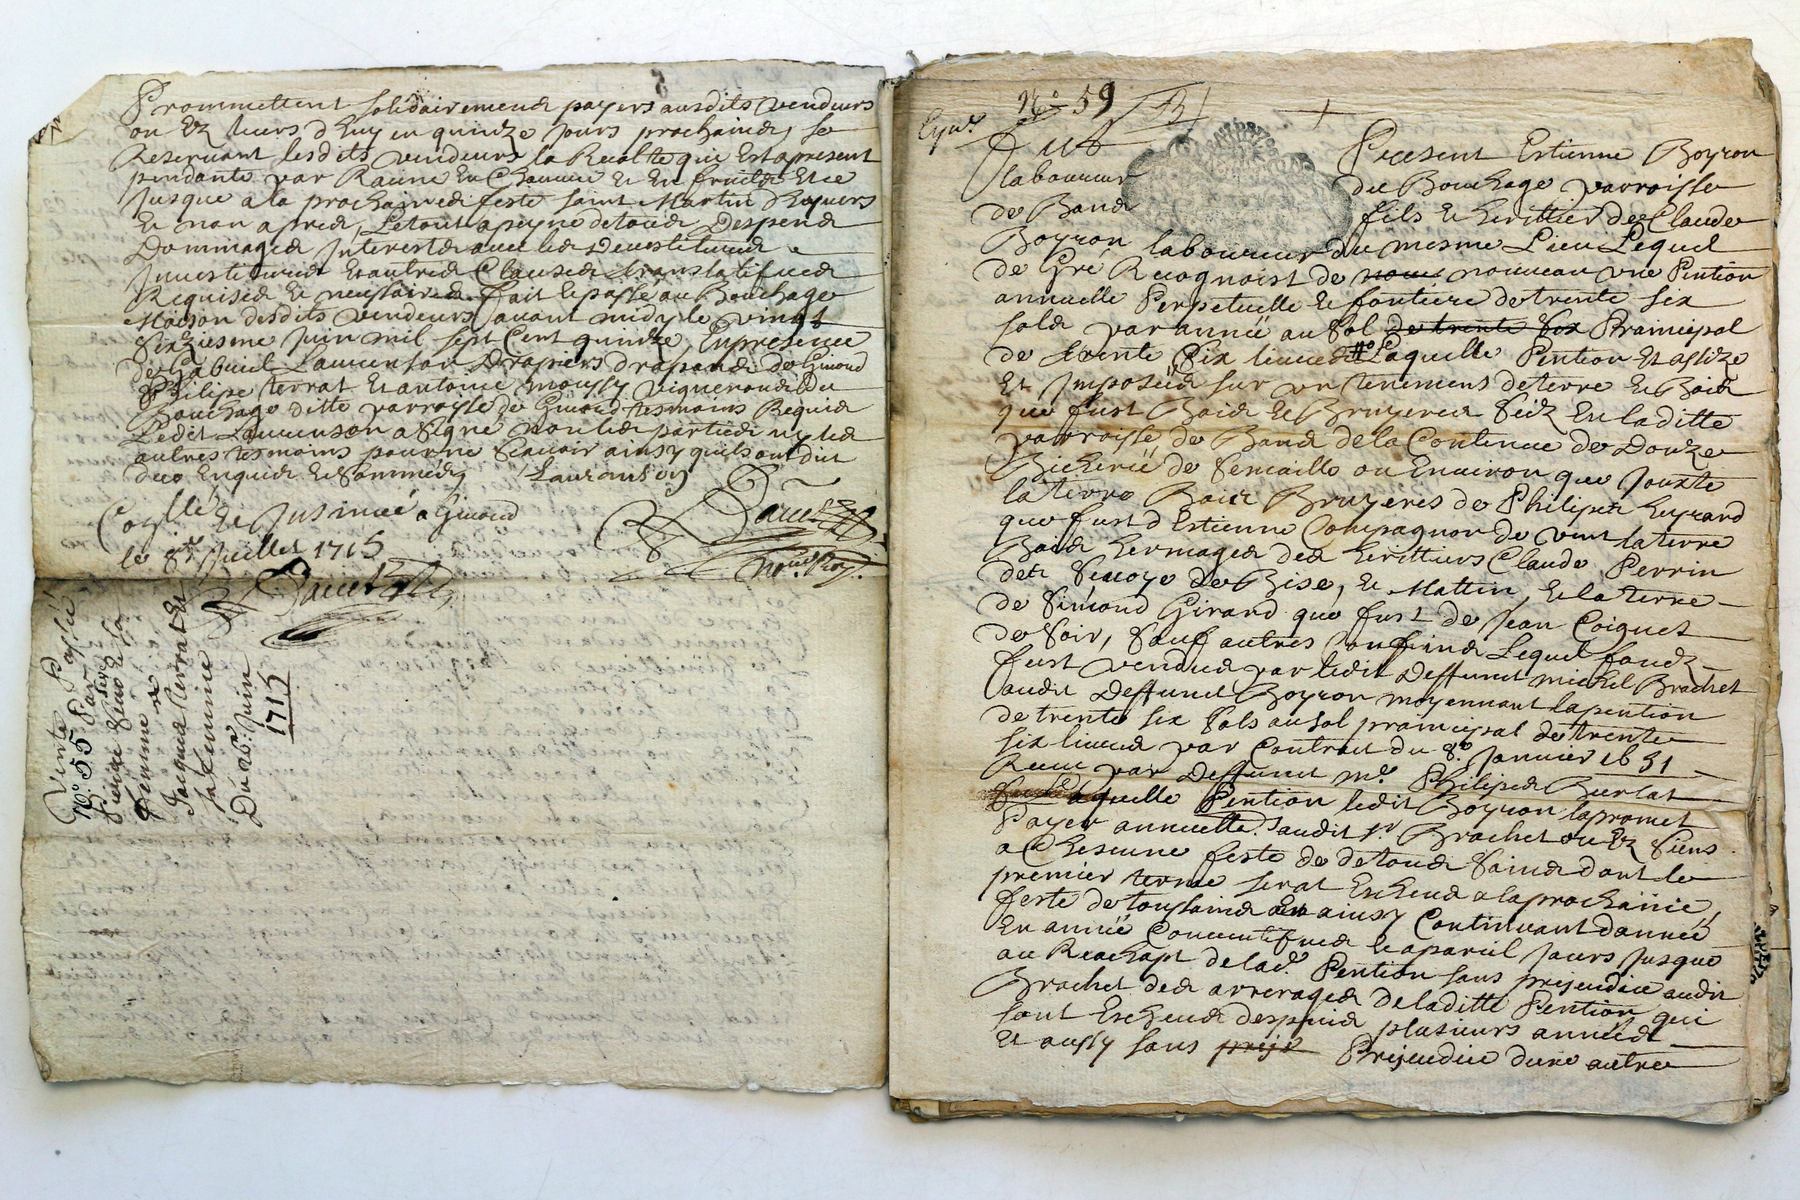 Prommettent solidairemend payers ausdits vendeurs
ou Ez leurs d'huy en quinze Jours prochainds, se
Reservant lesdits vendeurs la Recolte qui Est apresent
pendante par Racine En Chaume Et En fruitds Et ce
Jusque à la prochained feste saint Martin d'hyvers
Et non apred, Le tout apeyne detoud Despend
Dommaged Interestd avec led Devestitured
Investitured Et autred Claused translatifued
Requised Et nessaired. fait Et passé au Bouchage
Maison desdits vendeurs avant midy le vingt
sixziesme Juin mil sept Cent quinze, En presence
de Gabriel Laurenson Drapiers drapand de Gimond
Philipe terrat Et antoine moussy vignerond du
Bouchage ditte parroisse de Gimond tesmoins Requid
Ledit Laurenson a signé non led partied ny led
autres tesmoins pour ne scavoir ainsy quils ont dit
deux Enquid Et sommedz Lauranson
Coȝllé Et Insinué a Gimond
le 8e Juillet 1715
No.re Roy.
Vente Passé
No. 55 Par
Pierre
femme a
Jacques terrat Et
sa femme
Du 26. Juin
1715
No. 59
laboureur
de Band
Present Estienne Boyron
du Bouchage parroisse
fils Et herittier de Claude
Boyron laboureur du mesme Lieu Lequel
de Gré Recognoist de nouv nouveau une Pention
annuelle Perpetuelle Et fontiere de trente six
sold par année au sol de trente six Prainsipal
de trente six livred Laquelle Pention Est assize
Et Imposéed sur un tenement de terre Et Boid
que fust Boid Et Bruyered scidz En laditte
parroisse de Band de la Contenue de Douze
Bicherié de semaille ou Environ que Jouxte
la terre Boid Bruyeres de Philiped heyrard
que fust d'Estienne Compagnon de vent la terre
Boid hermaged ded herittiers Claude Perrin
de Bise, Et Mattin, Et la terre
de Simond Girard que fust de Jean Coignet
de soir, sauf autres Confind Lequel fondz
fust vendud par ledit Deffunct michel Brachet
audit Deffunct Boyron moyennant la pention
de trente six sols au sol prainsipal de trente
six livred par Contrat du 8e Janvier 1651
Receu par Deffunct me. Philiped Burlat
Laquelle Pention ledit Boyron la promet
Payer annuelle.t audit sr Brachet ou Ez siens
a Chescune feste de detoud saind dont le
premier terme serat Escheud a la prochainé
feste de toussaind ainsy Continuant dannéé
En annéé Consecutifued Et apareil Jours Jusque
au Reachapt de lad.e Pention sans prejeudice audit
Brachet ded arreraged de laditte Pention qui
sont Escheud despuid plusieurs annéed
Et aussy sans preje Prejeudice dune autre